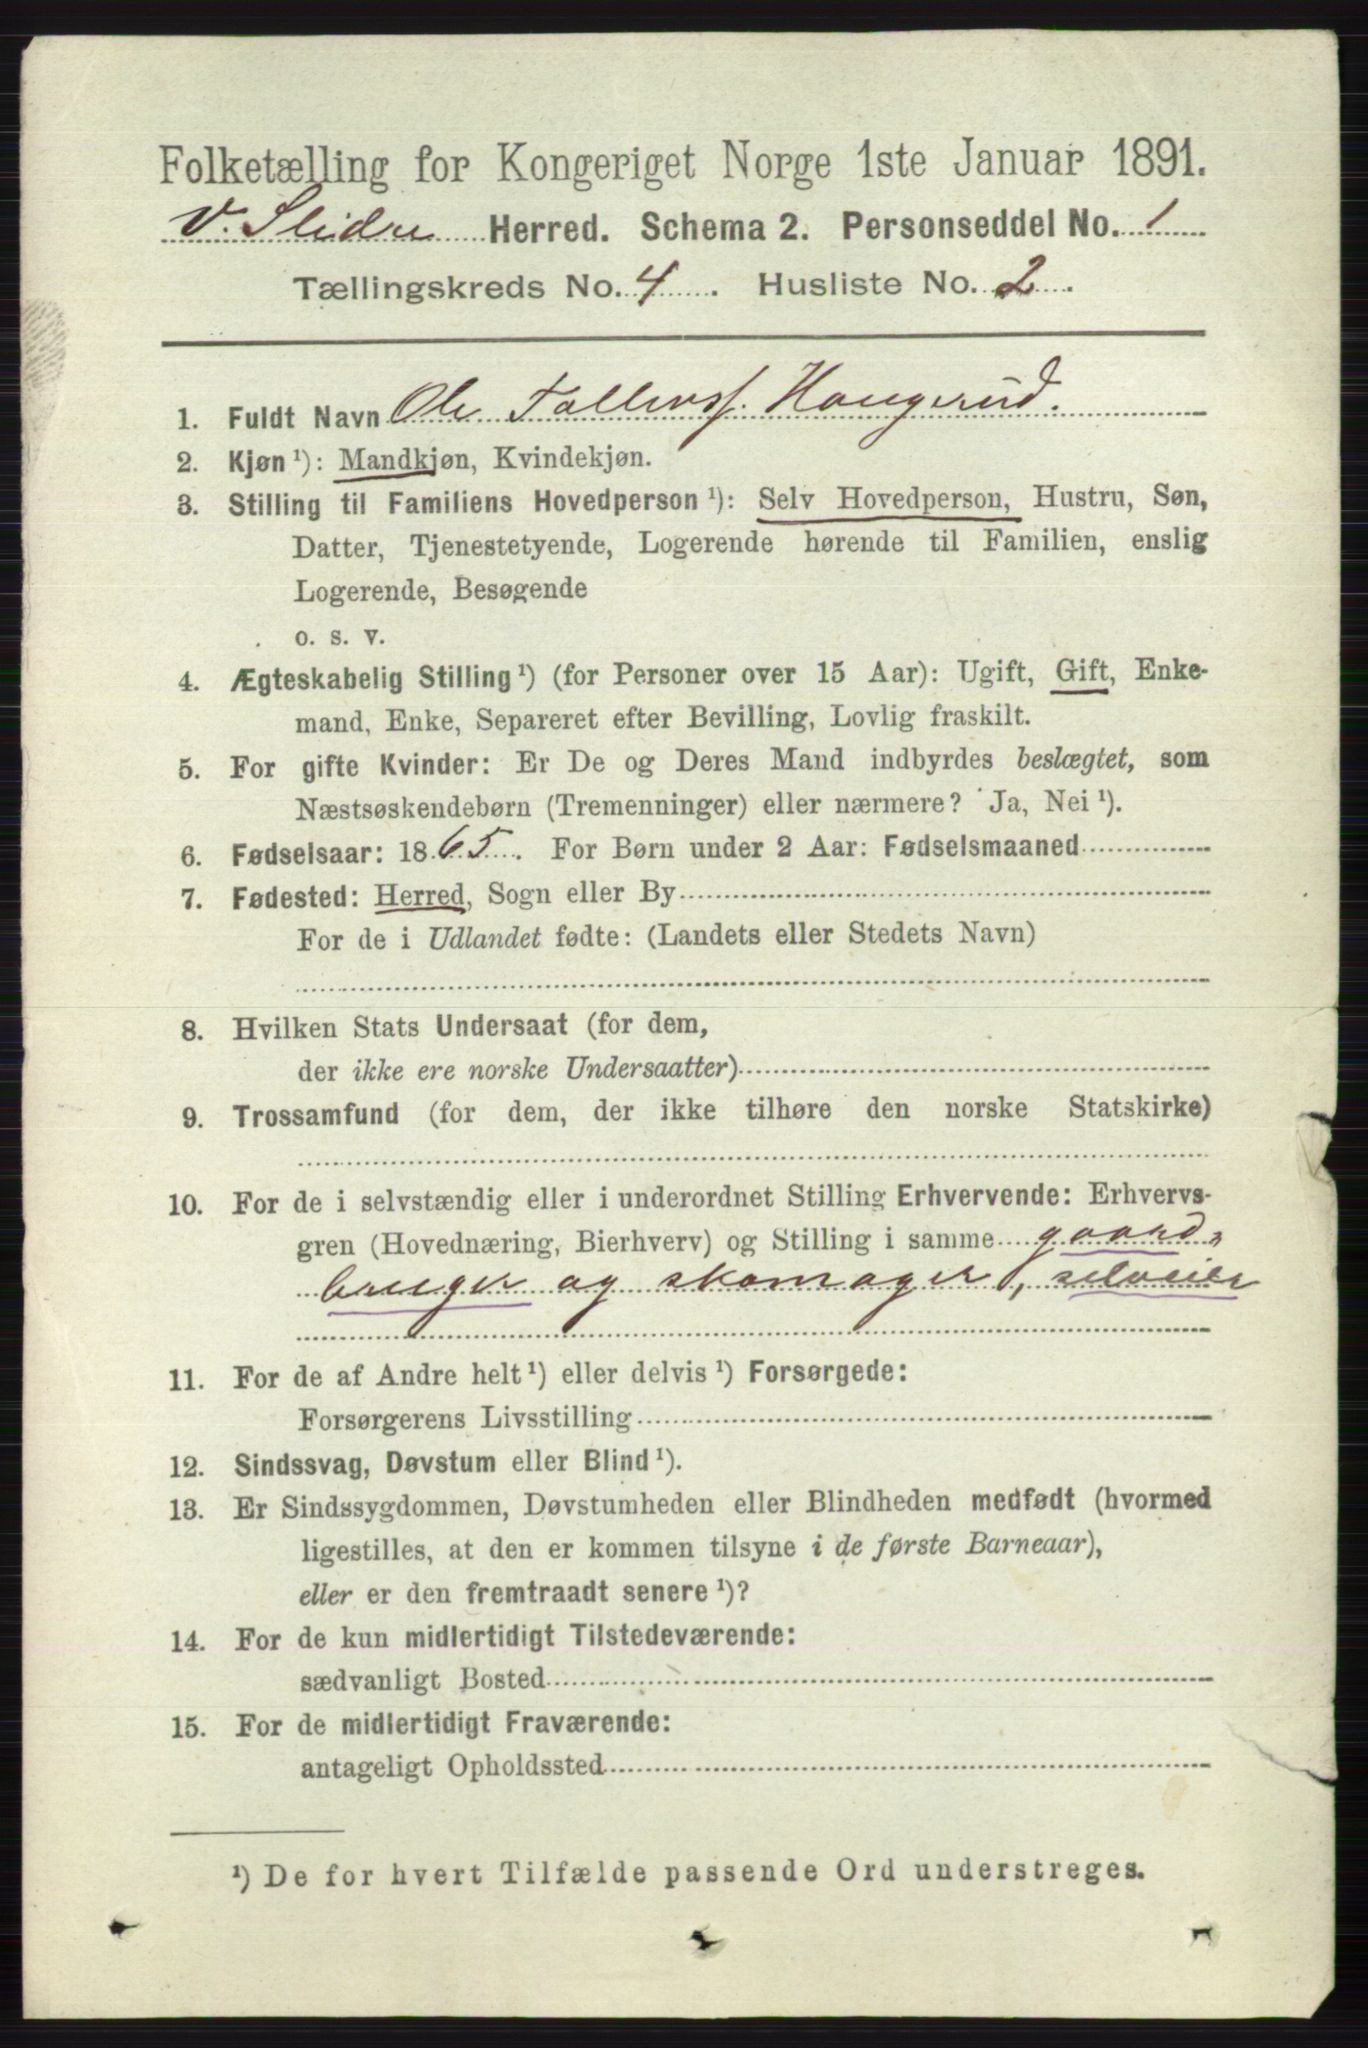 Folketælling for Kongeriget Norge 1ste Januar 1891.
V. Slidre Herred. Schema 2. Personseddel No. 1
Tællingskreds No. 4. Husliste No. 2.
1. Fuldt Navn Ole Haugerud.
2. Kjøn ¹): Mandkjøn, Kvindekjøn.
3. Stilling til Familiens Hovedperson ¹): Selv Hovedperson, Hustru, Søn,
Datter, Tjenestetyende, Logerende hørende til Familien, enslig
Logerende, Besøgende
o. s. v.
4. Ægteskabelig Stilling ¹) (for Personer over 15 Aar): Ugift, Gift, Enke-
mand, Enke, Separeret efter Bevilling, Lovlig fraskilt.
5. For gifte Kvinder: Er De og Deres Mand indbyrdes beslægtet, som
Næstsøskendebørn (Tremenninger) eller nærmere? Ja, Nei ¹).
6. Fødselsaar: 1865. For Børn under 2 Aar: Fødselsmaaned
7. Fødested: Herred, Sogn eller By
For de i Udlandet fødte: (Landets eller Stedets Navn)
8. Hvilken Stats Undersaat (for dem,
der ikke ere norske Undersaatter)
9. Trossamfund (for dem, der ikke tilhøre den norske Statskirke)
10. For de i selvstændig eller i underordnet Stilling Erhvervende: Erhvervs-
gren (Hovednæring, Bierhverv) og Stilling i samme gaard-
bruger og skomager, selveier
11. For de af Andre helt ¹) eller delvis ¹) Forsørgede:
Forsørgerens Livsstilling
12. Sindssvag, Døvstum eller Blind ¹).
13. Er Sindssygdommen, Døvstumheden eller Blindheden medfødt (hvormed
ligestilles, at den er kommen tilsyne i de første Barneaar),
eller er den fremtraadt senere ¹)?
14. For de kun midlertidigt Tilstedeværende:
sædvanligt Bosted
15. For de midlertidigt Fraværende:
antageligt Opholdssted
¹) De for hvert Tilfælde passende Ord understreges.